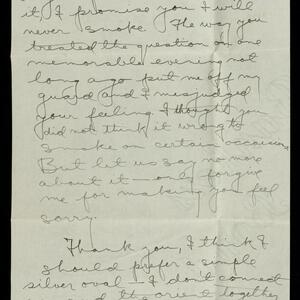 it, I promise you I will
never smoke. The way you
treated the question on one
memorable evening not
long ago put me off my
guard and I misjudged
your feeling. I thought you
did not think it wrong to
smoke on certain occasions.
But let us say no more
about it — only forgive
me for making you feel
sorry.
Thank you, I think I
should prefer a simple
silver oval. I don't connect
and the orient together